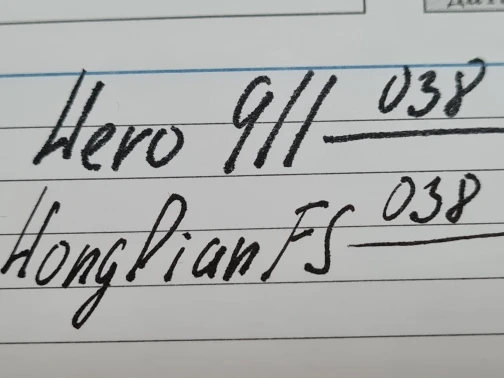 Hero 911 038
HongDian FS 038